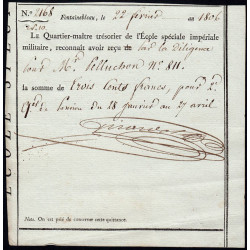 N.º 2168
Fontainebleau, le 22 février an 1806
Le Quartier-maître trésorier de l'École spéciale impériale
militaire, reconnaît avoir reçu par la diligence
pour Mr. Pelluchon N.º 811.
la somme de trois cents francs, pour 2.e
février du 28 janvier au 27 avril
Nota. On est prié de conserver cette quittance.